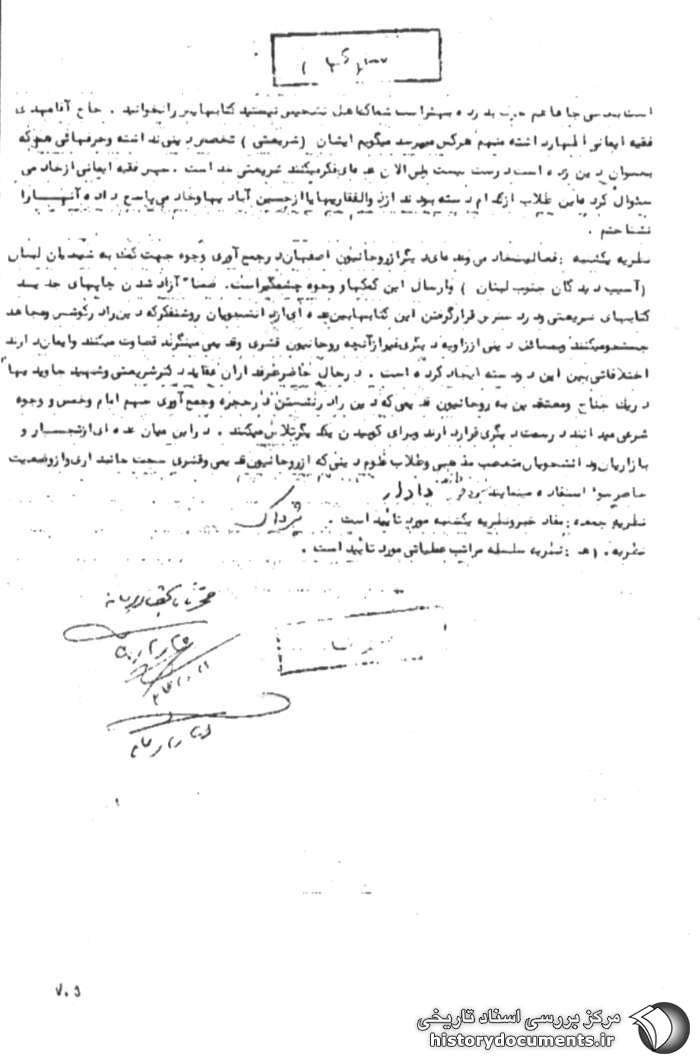 است بعضی جاها هم حرف بد زده بهتر است شما که اهل تشخیص نیستید کتابهایش را نخوانید . حاج آقا مهدی
فقیه ایمانی اظهار داشته منهم هرکس میرسد میگویم ایشان (شریعتی) تخصص دینی نداشته وحرفهائی هم که
بعنوان دین زده است درست نیست ولی الان عده‌ای فکر میکنند شریعتی خداست . سپس فقیه ایمانی از خادمی
سئوال کرد این طلاب از کدام دسته بودند از ذوالفقاریها یا از حسین آبادیها وخادمی پاسخ داده آنها را
نشناختم .
نظریه یکشنبه : فعالیت خادمی وعده‌ای دیگر از روحانیون اصفهان در جمع آوری وجوه جهت کمک به شیعیان لبنان
(آسیب دیدگان جنوب لبنان ) وارسال این کمکها و وجوه چشمگیر است . ضمناً آزاد شدن چاپهای جدید
کتابهای شریعتی ودر دسترس قرار گرفتن این کتابها بین عده‌ای از دانشجویان روشنفکر که دین را در کوشش ومجاهد
جستجو میکنند ومسائل دینی از زاویه دیگری غیر از آنچه روحانیون قشری وقدیمی مینگرند قضاوت میکنند وایمان دارند
اختلافاتی بین این دو دسته ایجاد کرده است . در حال حاضر طرفداران عقاید دکتر شریعتی وشهید جاویدیها
در یک جناح ومعتقدین به روحانیون قدیمی که دین را در نشستن در حجره وجمع آوری سهم امام وخمس و وجوه
شرعی میدانند در سمت دیگری قرار دارند وبرای کوبیدن یکدیگر تلاش میکنند . در این میان عده‌ای از تجار و
بازاریان ودانشجویان متعصب مذهبی وطلاب علوم دینی که از روحانیون قدیمی وقشری سخت جانبداری واز وضعیت
حاضر سوء استفاده مینمایند دادار
نظریه جمعه : مفاد خبر ونظریه یکشنبه مورد تأیید است . پژداک
نظریه ۱۰ ه : نظریه سلسله مراتب عملیاتی مورد تأیید است .
۷۰۵
مرکز بررسی اسناد تاریخی
historydocuments.ir